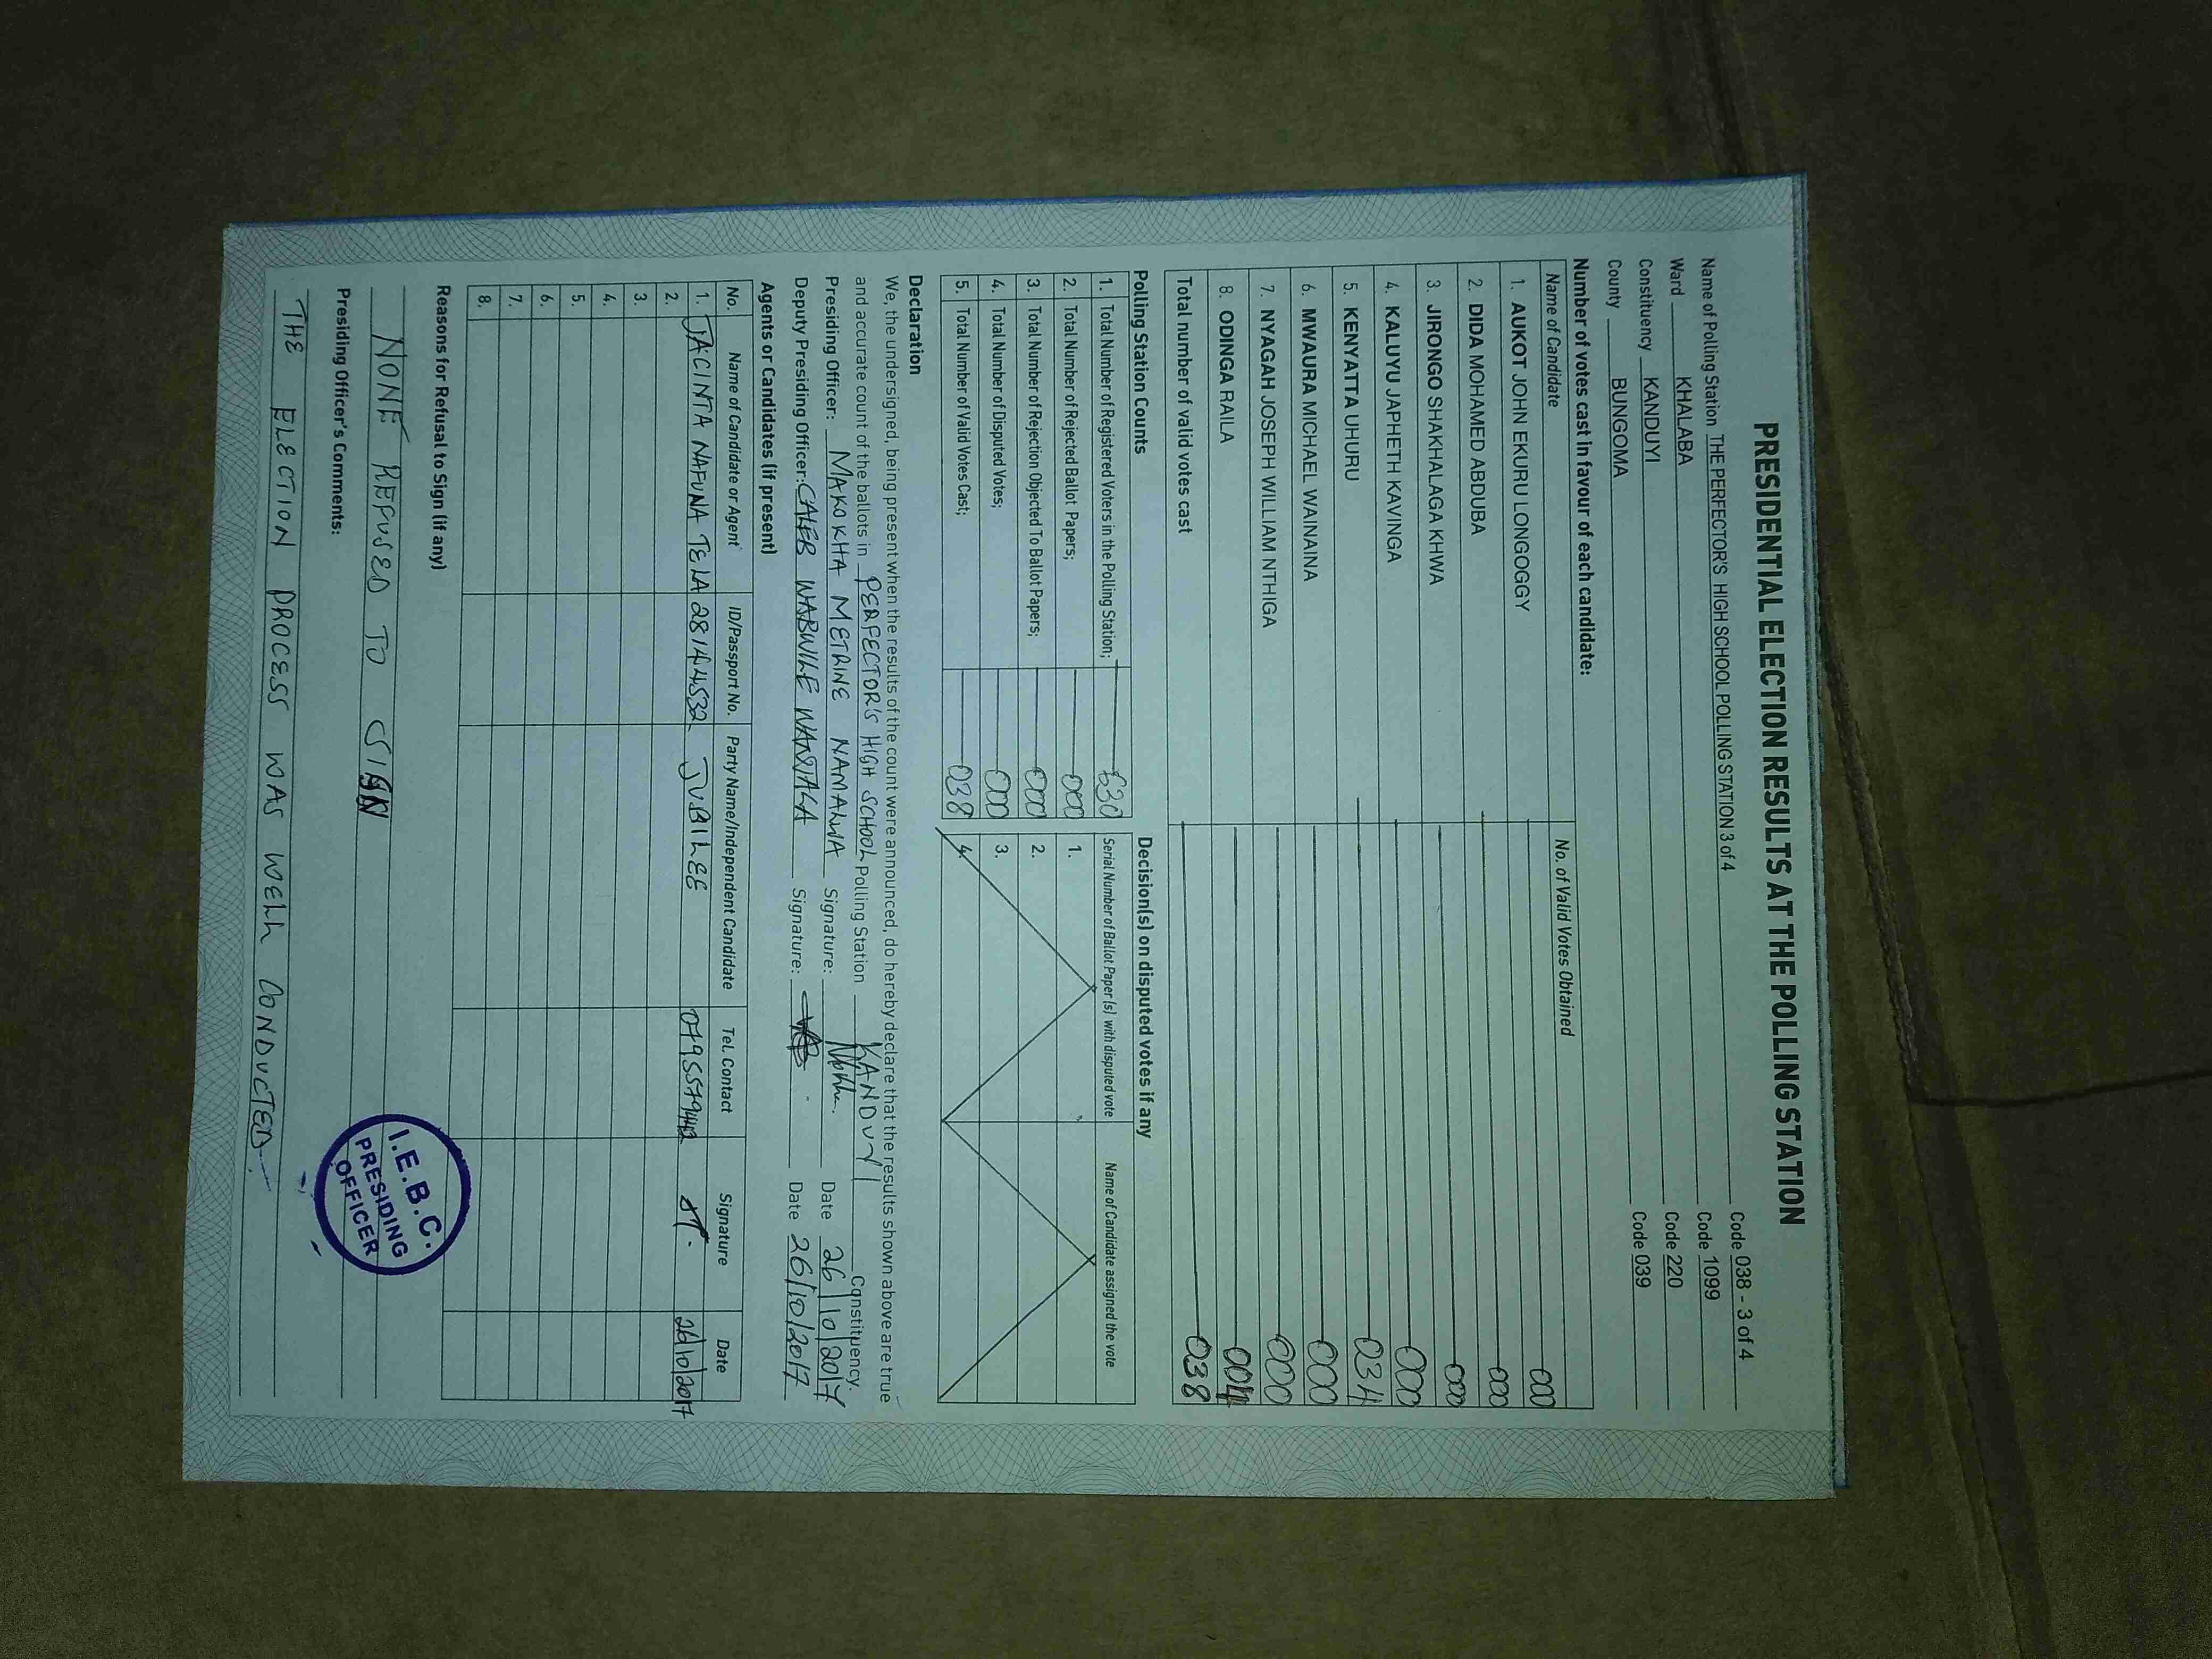 PRESIDENTIAL ELECTION RESULTS AT THE POLLING STATION
Name of Polling Station THE PERFECTOR'S HIGH SCHOOL POLLING STATION 3 of 4 Code 038 - 3 of 4
Ward KHALABA Code 1099
Constituency KANDUYI Code 220
County BUNGOMA Code 039
Number of votes cast in favour of each candidate:
Name of Candidate No. of Valid Votes Obtained
1. AUKOT JOHN EKURU LONGOGGY 000
2. DIDA MOHAMED ABDUBA 000
3. JIRONGO SHAKHALAGA KHWA 000
4. KALUYU JAPHETH KAVINGA 000
5. KENYATTA UHURU 034
6. MWAURA MICHAEL WAINAINA 000
7. NYAGAH JOSEPH WILLIAM NTHIGA 000
8. ODINGA RAILA 004
Total number of valid votes cast 038
Polling Station Counts
1. Total Number of Registered Voters in the Polling Station; 630
2. Total Number of Rejected Ballot Papers; 000
3. Total Number of Rejection Objected To Ballot Papers; 000
4. Total Number of Disputed Votes; 000
5. Total Number of Valid Votes Cast; 038
Decision(s) on disputed votes if any
Serial Number of Ballot Paper (s) with disputed vote Name of Candidate assigned the vote
1.
2.
3.
4.
Declaration
We, the undersigned, being present when the results of the count were announced, do hereby declare that the results shown above are true
and accurate count of the ballots in PERFECTOR'S HIGH SCHOOL Polling Station KANDUYI Constituency.
Presiding Officer: MAKOKHA METRINE NAMALWA Signature: Date 26/10/2017
Deputy Presiding Officer: CALEB WABWILE Signature: Date 26/10/2017
Agents or Candidates (if present)
No. Name of Candidate or Agent ID/Passport No. Party Name/Independent Candidate Tel. Contact Signature Date
1. JACINTA NAFUNA TELA 28144532 JUBILEE 26/10/2017
2.
3.
4.
5.
6.
7.
8.
Reasons for Refusal to Sign (if any)
NONE REFUSED TO SIGN
Presiding Officer's Comments:
THE ELECTION PROCESS WAS WELL CONDUCTED.
I.E.B.C.
PRESIDING
OFFICER